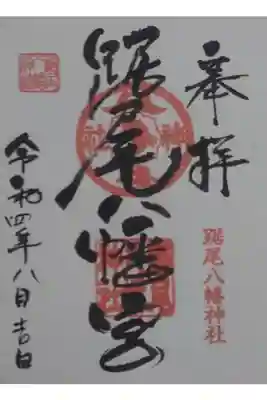 奉拝
踞尾八幡神社
踞尾八幡宮
令和四年八月吉日